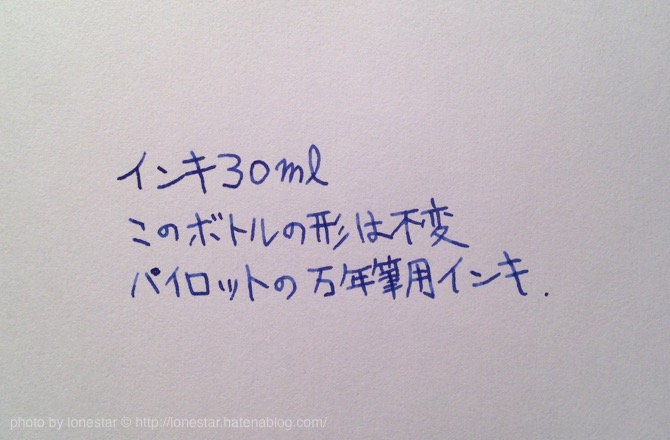 インキ30ml
このボトルの形は不変
パイロットの万年筆用インキ.
photo by lonestar © http://lonestar.hatenablog.com/